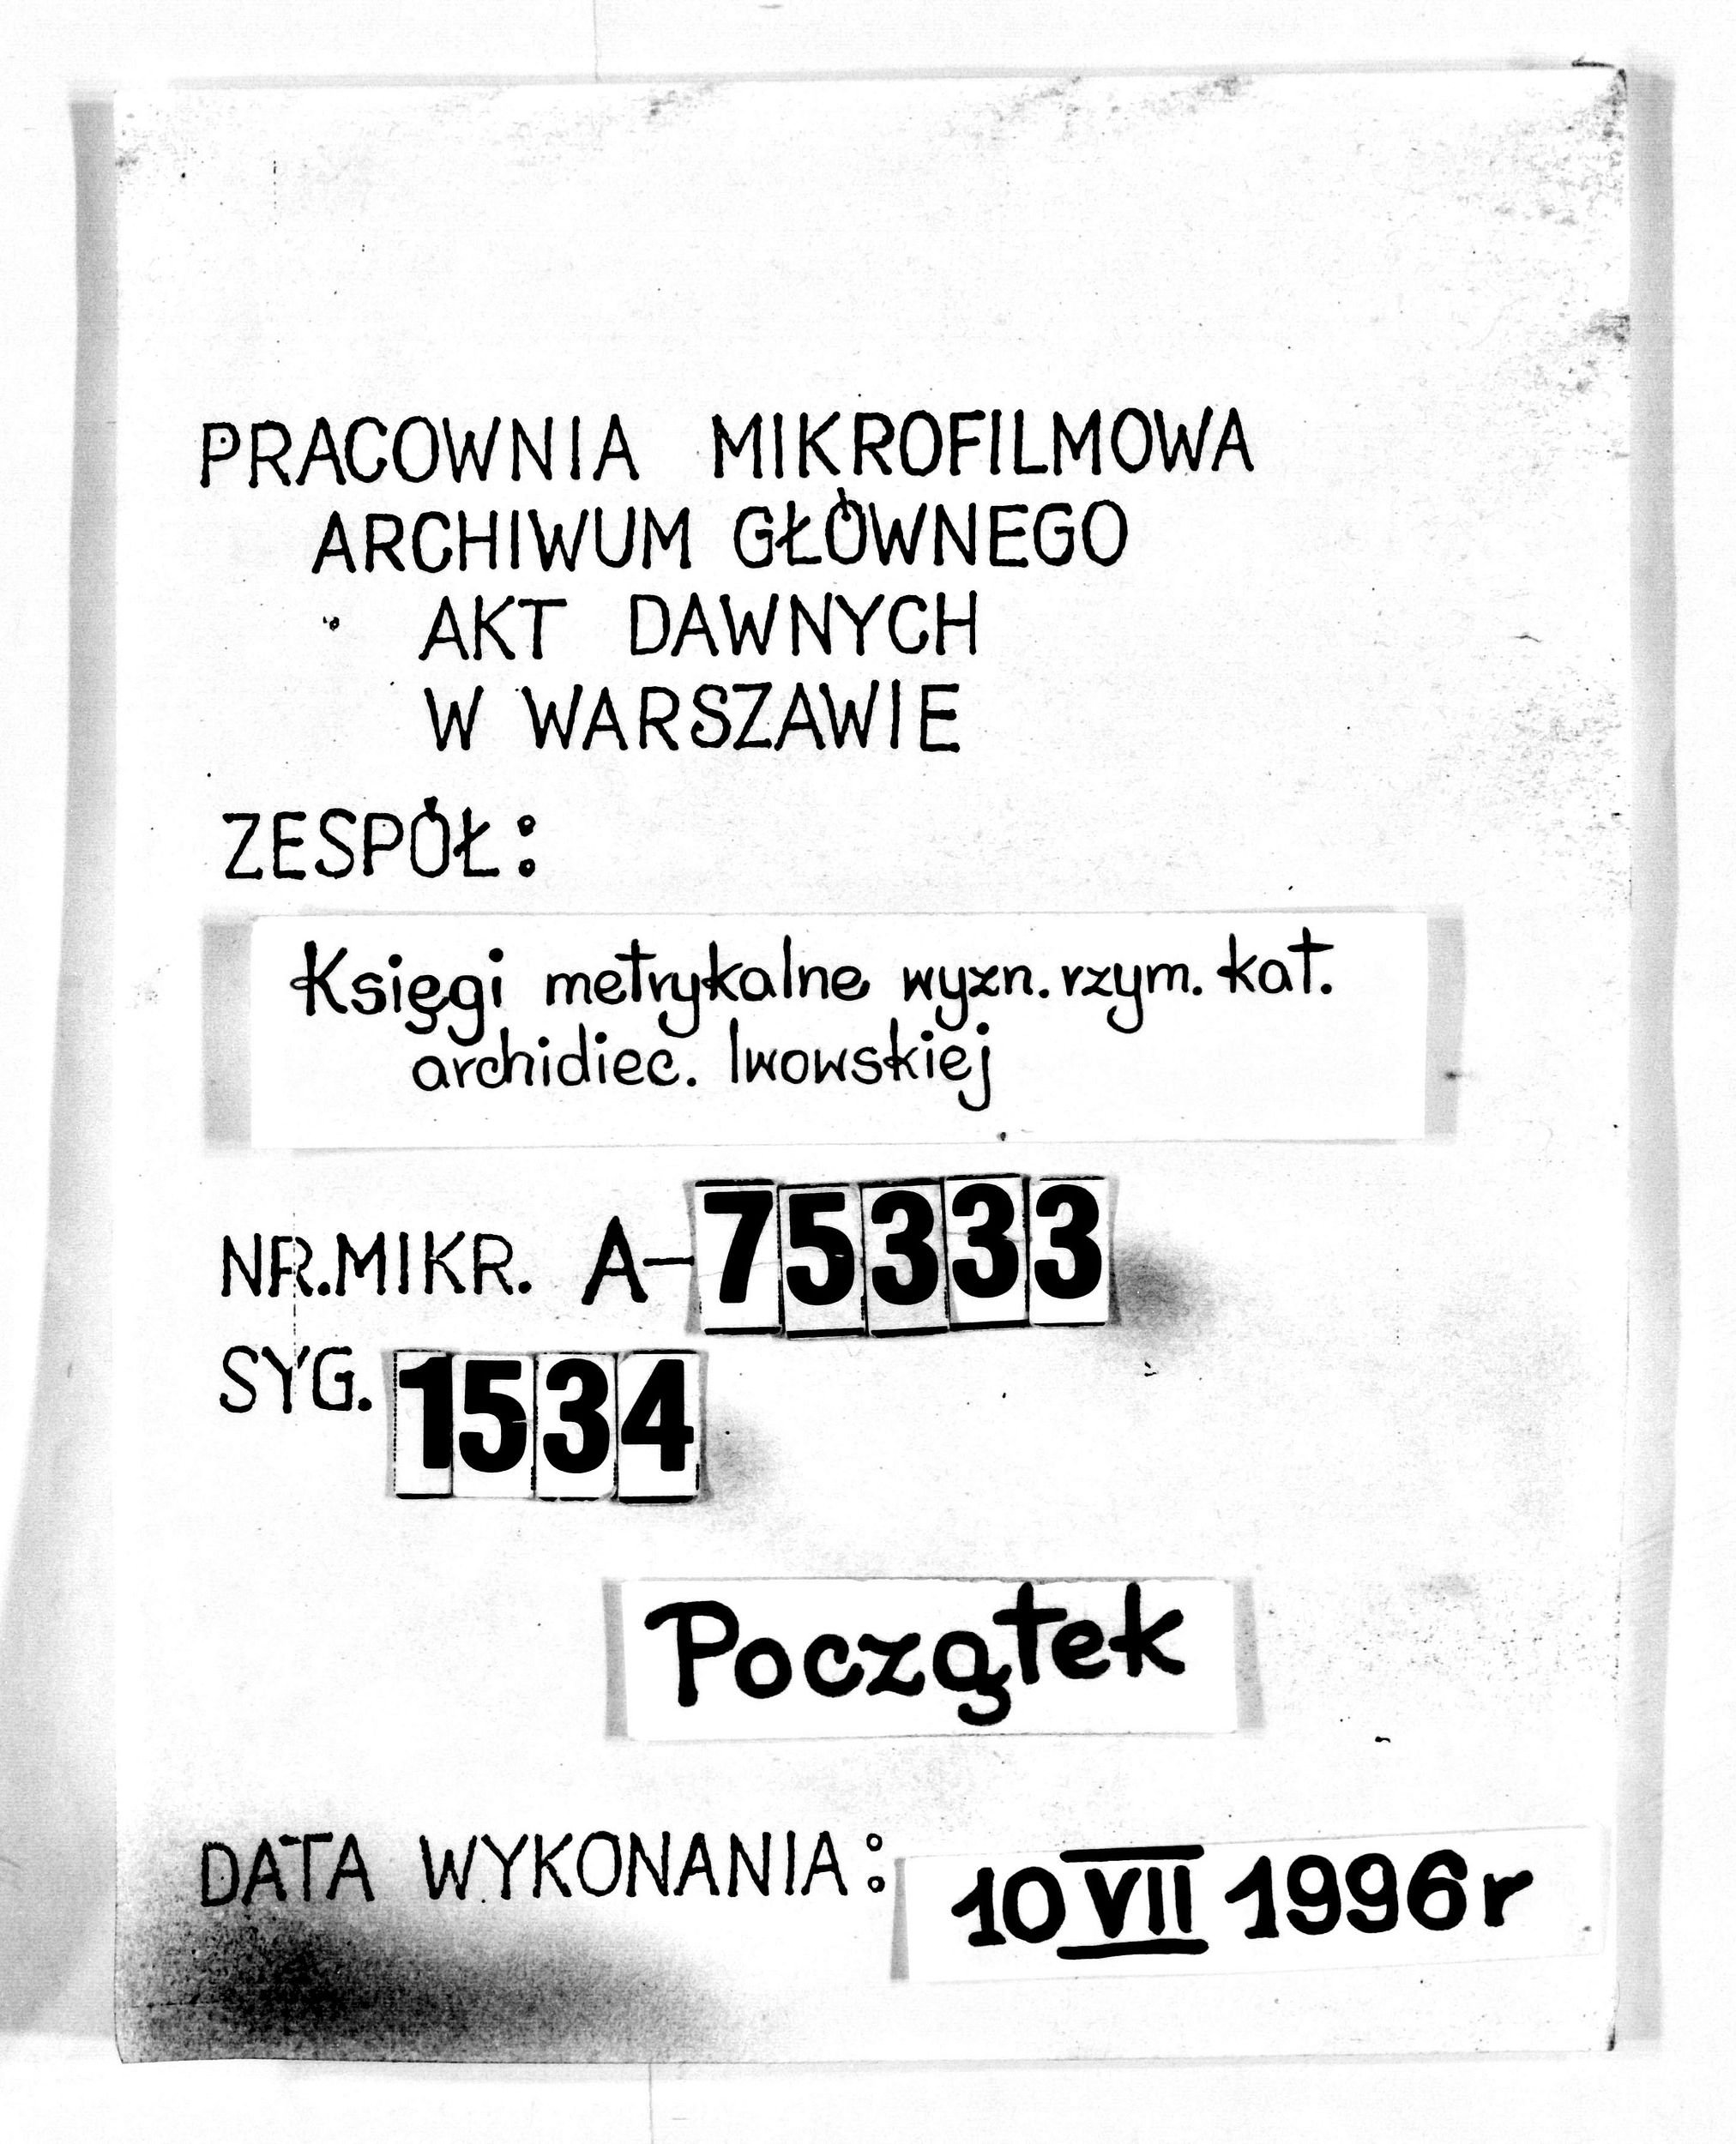 PRACOWNIA MIKROFILMOWA
ARCHIWUM GŁÓWNEGO
AKT DAWNYCH
W WARSZAWIE
ZESPÓŁ:
Księgi metrykalne wyzn. rzym. kat.
archidiec. lwowskiej
NR.MIKR. A-75333
SYG. 1534
Początek
DATA WYKONANIA: 10 VII 1996r